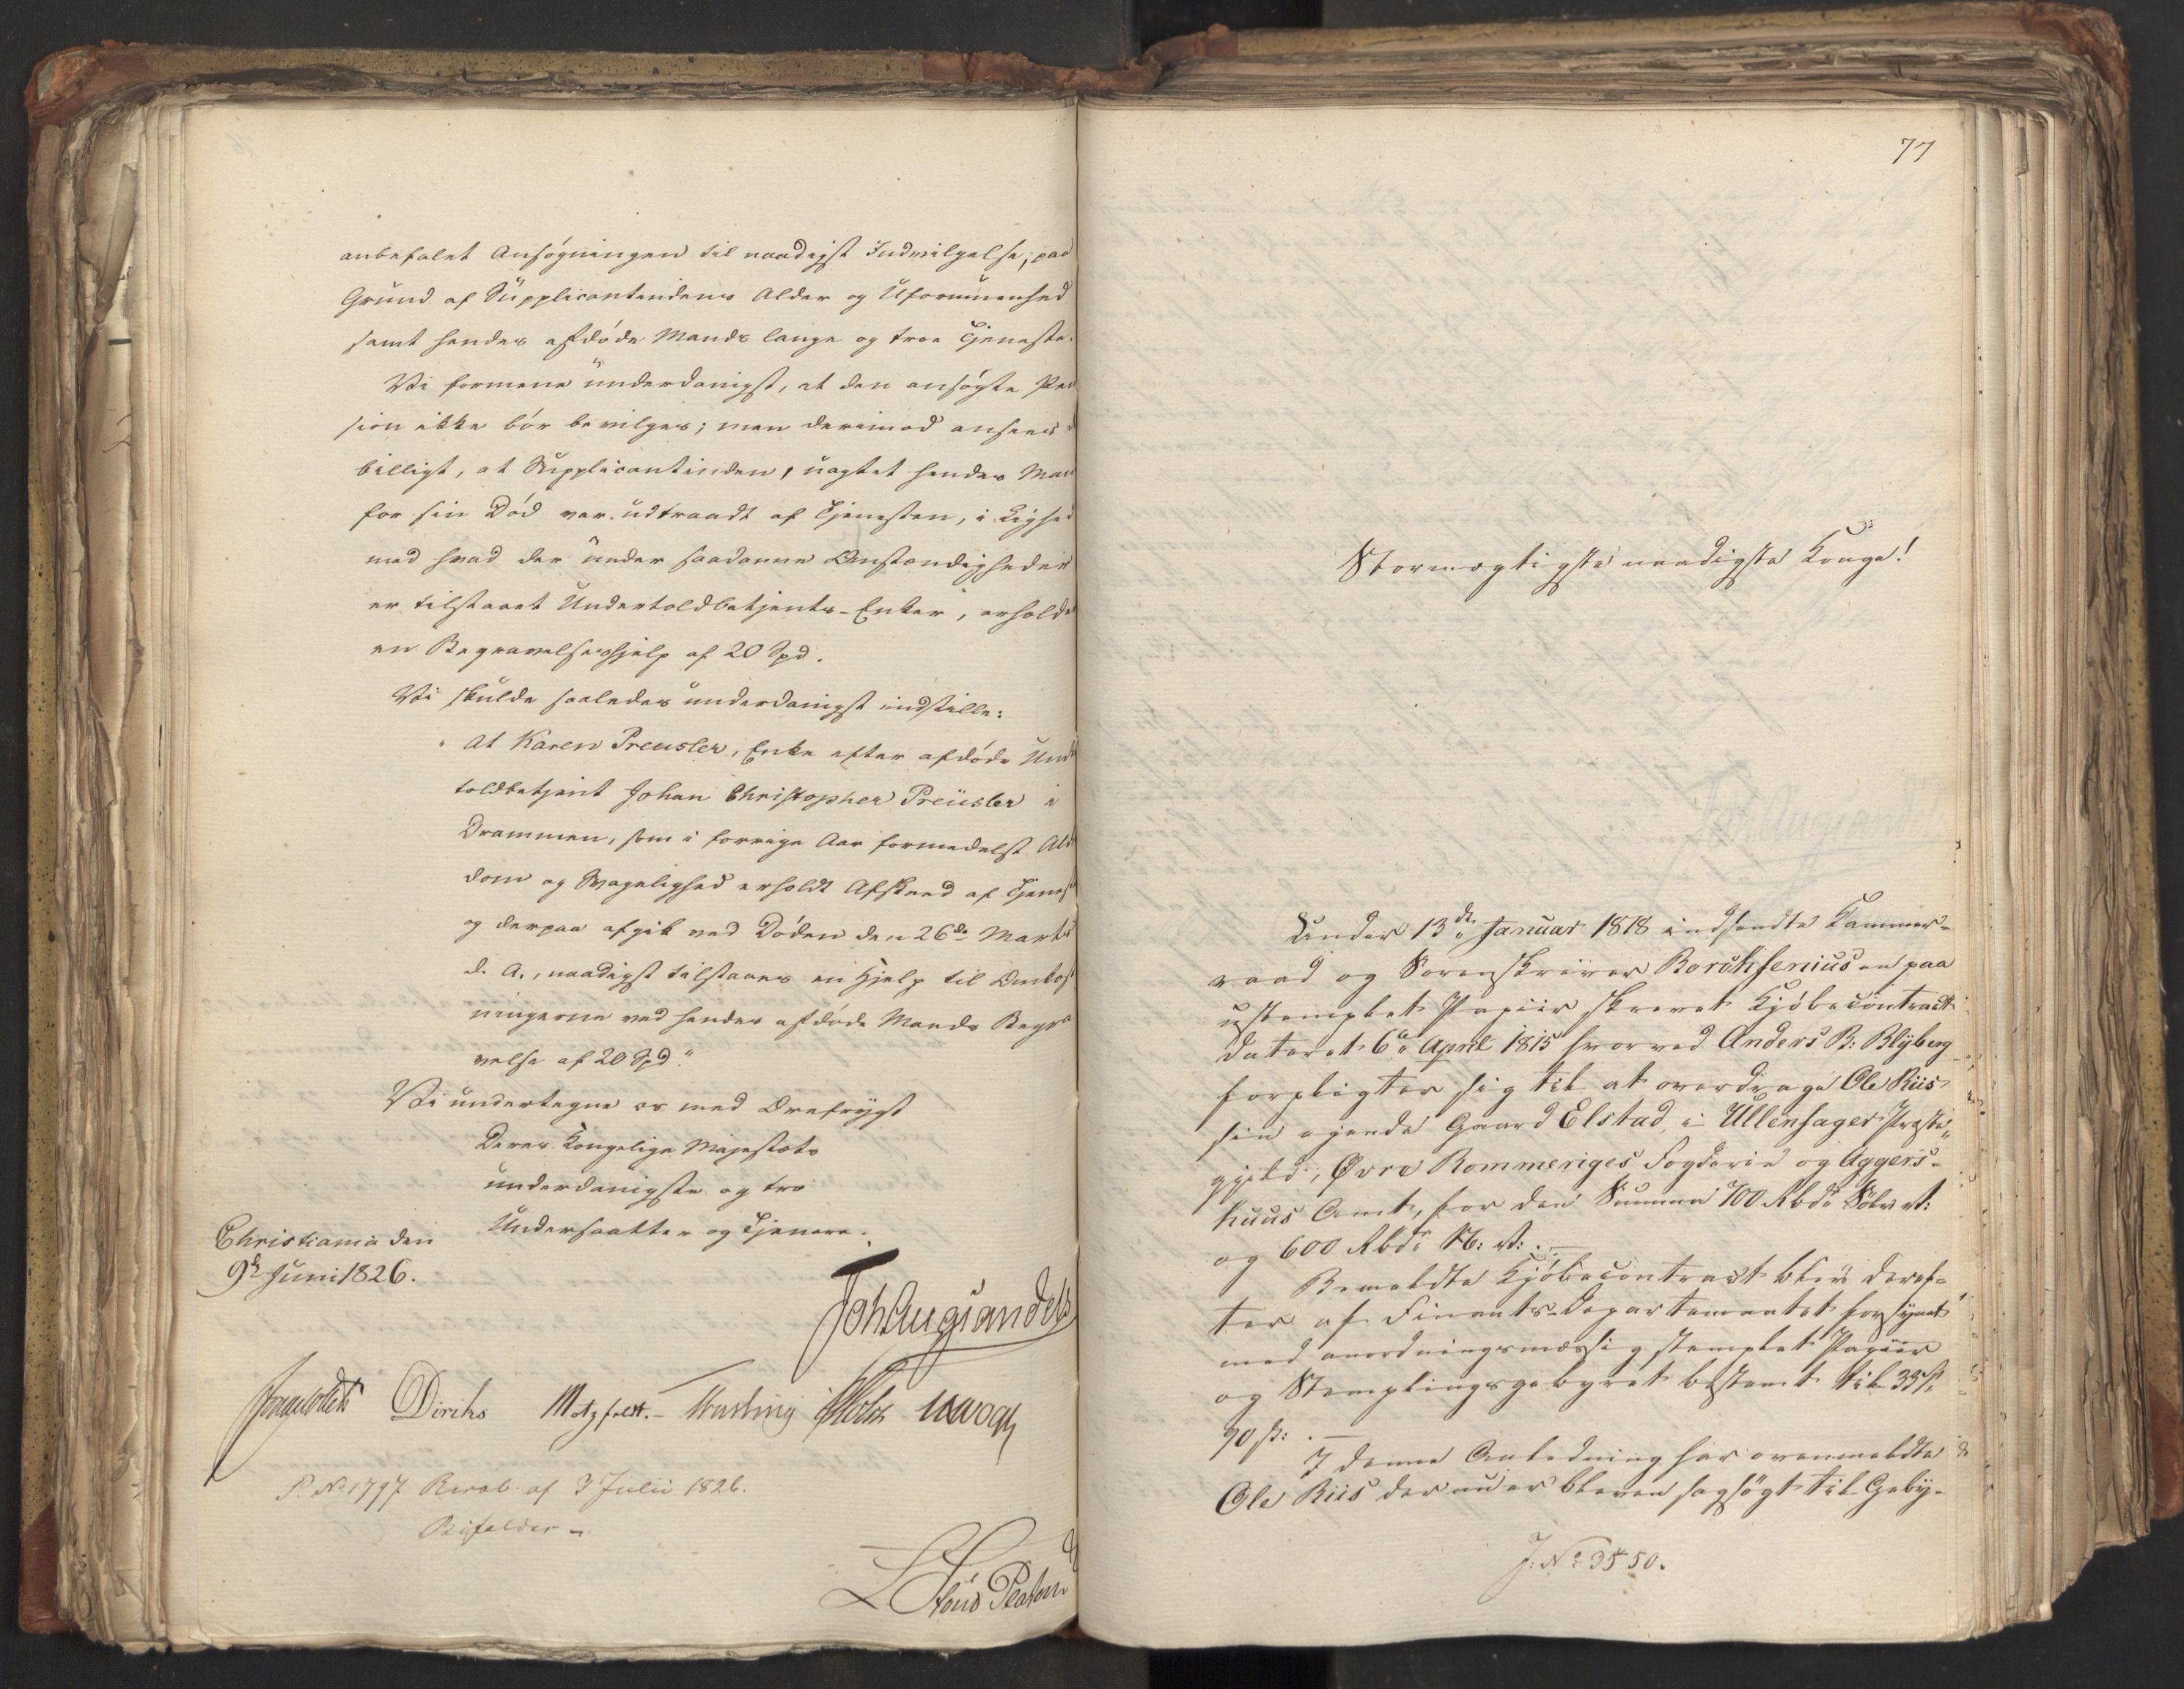 anbefalet Ansøgningen til naadigst Indvilgelse, paa
Grund af Supplicantindens Alder og Uformuenhed
samt hendes afdøde Mands lange og troe Tjeneste.
Vi formene underdanigst, at den ansøgte Pen
sion ikke bør bevilges; men derimod ansees d
billigt, at Supplicantinden, uagtet hendes Man
før sin Død var udtraadt af Tjenesten, i Lighed
med hvad der under saadanne Omstændigheder
er tilstaaet Undertoldbetjents-Enker, erholder
en Begravelseshjelp af 20 Spd.
Vi skulde saaledes underdanigst indstille:
" At Karen Preusler, Enke efter afdøde Und
toldbetjent Johan Christopher Preusler i
Drammen, som i forrige Aar formedelst Al
dom og Svagelighed erholdt Afskeed af Tjenest
og derpaa afgik ved Døden den 26de Marts
d. A., naadigst tilstaaes en Hjelp til Omkost
ningerne ved hendes afdøde Mands Begra
velse af 20 Spd."
Vi undertegne os med Ærefrygt
Deres Kongelige Majestæts
underdanigste og tro
Undersaatter og Tjenere.
Christiania den
9de Juni 1826.
Joh Aug Sandels
Diriks Motzfeldt.
P. No 1797 Resol. af 3 Julii 1826.
Bifaldes
77
Stormægtigste naadigste Konge!
Under 13de Januar 1818 indsendte Kammer-
raad og Sorenskriver Borchsenius en paa
ustemplet Papiir skrevet Kjøbecontract
dateret 6te April 1815 hvorved Anders B. Blyberg
forpligter sig til at overdrage Ole Riis
sin eiende Gaard Elstad, i Ullensager Præste-
gjeld, Øvre Rommeriges Fogderie og Aggers-
huus Amt, for den Summa 700 Rbdr Sølv V:
og 600 Rbdr N: V: .-
Bemeldte Kjøbecontract blev deref-
ter af Finants-Departementet forsynet
med anordningsmæssig stemplet Papiir
og Stemplingsgebyret bestemt til 33
90 s: . -
I denne Anledning har ovenmeldte
Ole Riis der nu er bleven sagsøgt til Geby-
J. No 3550.